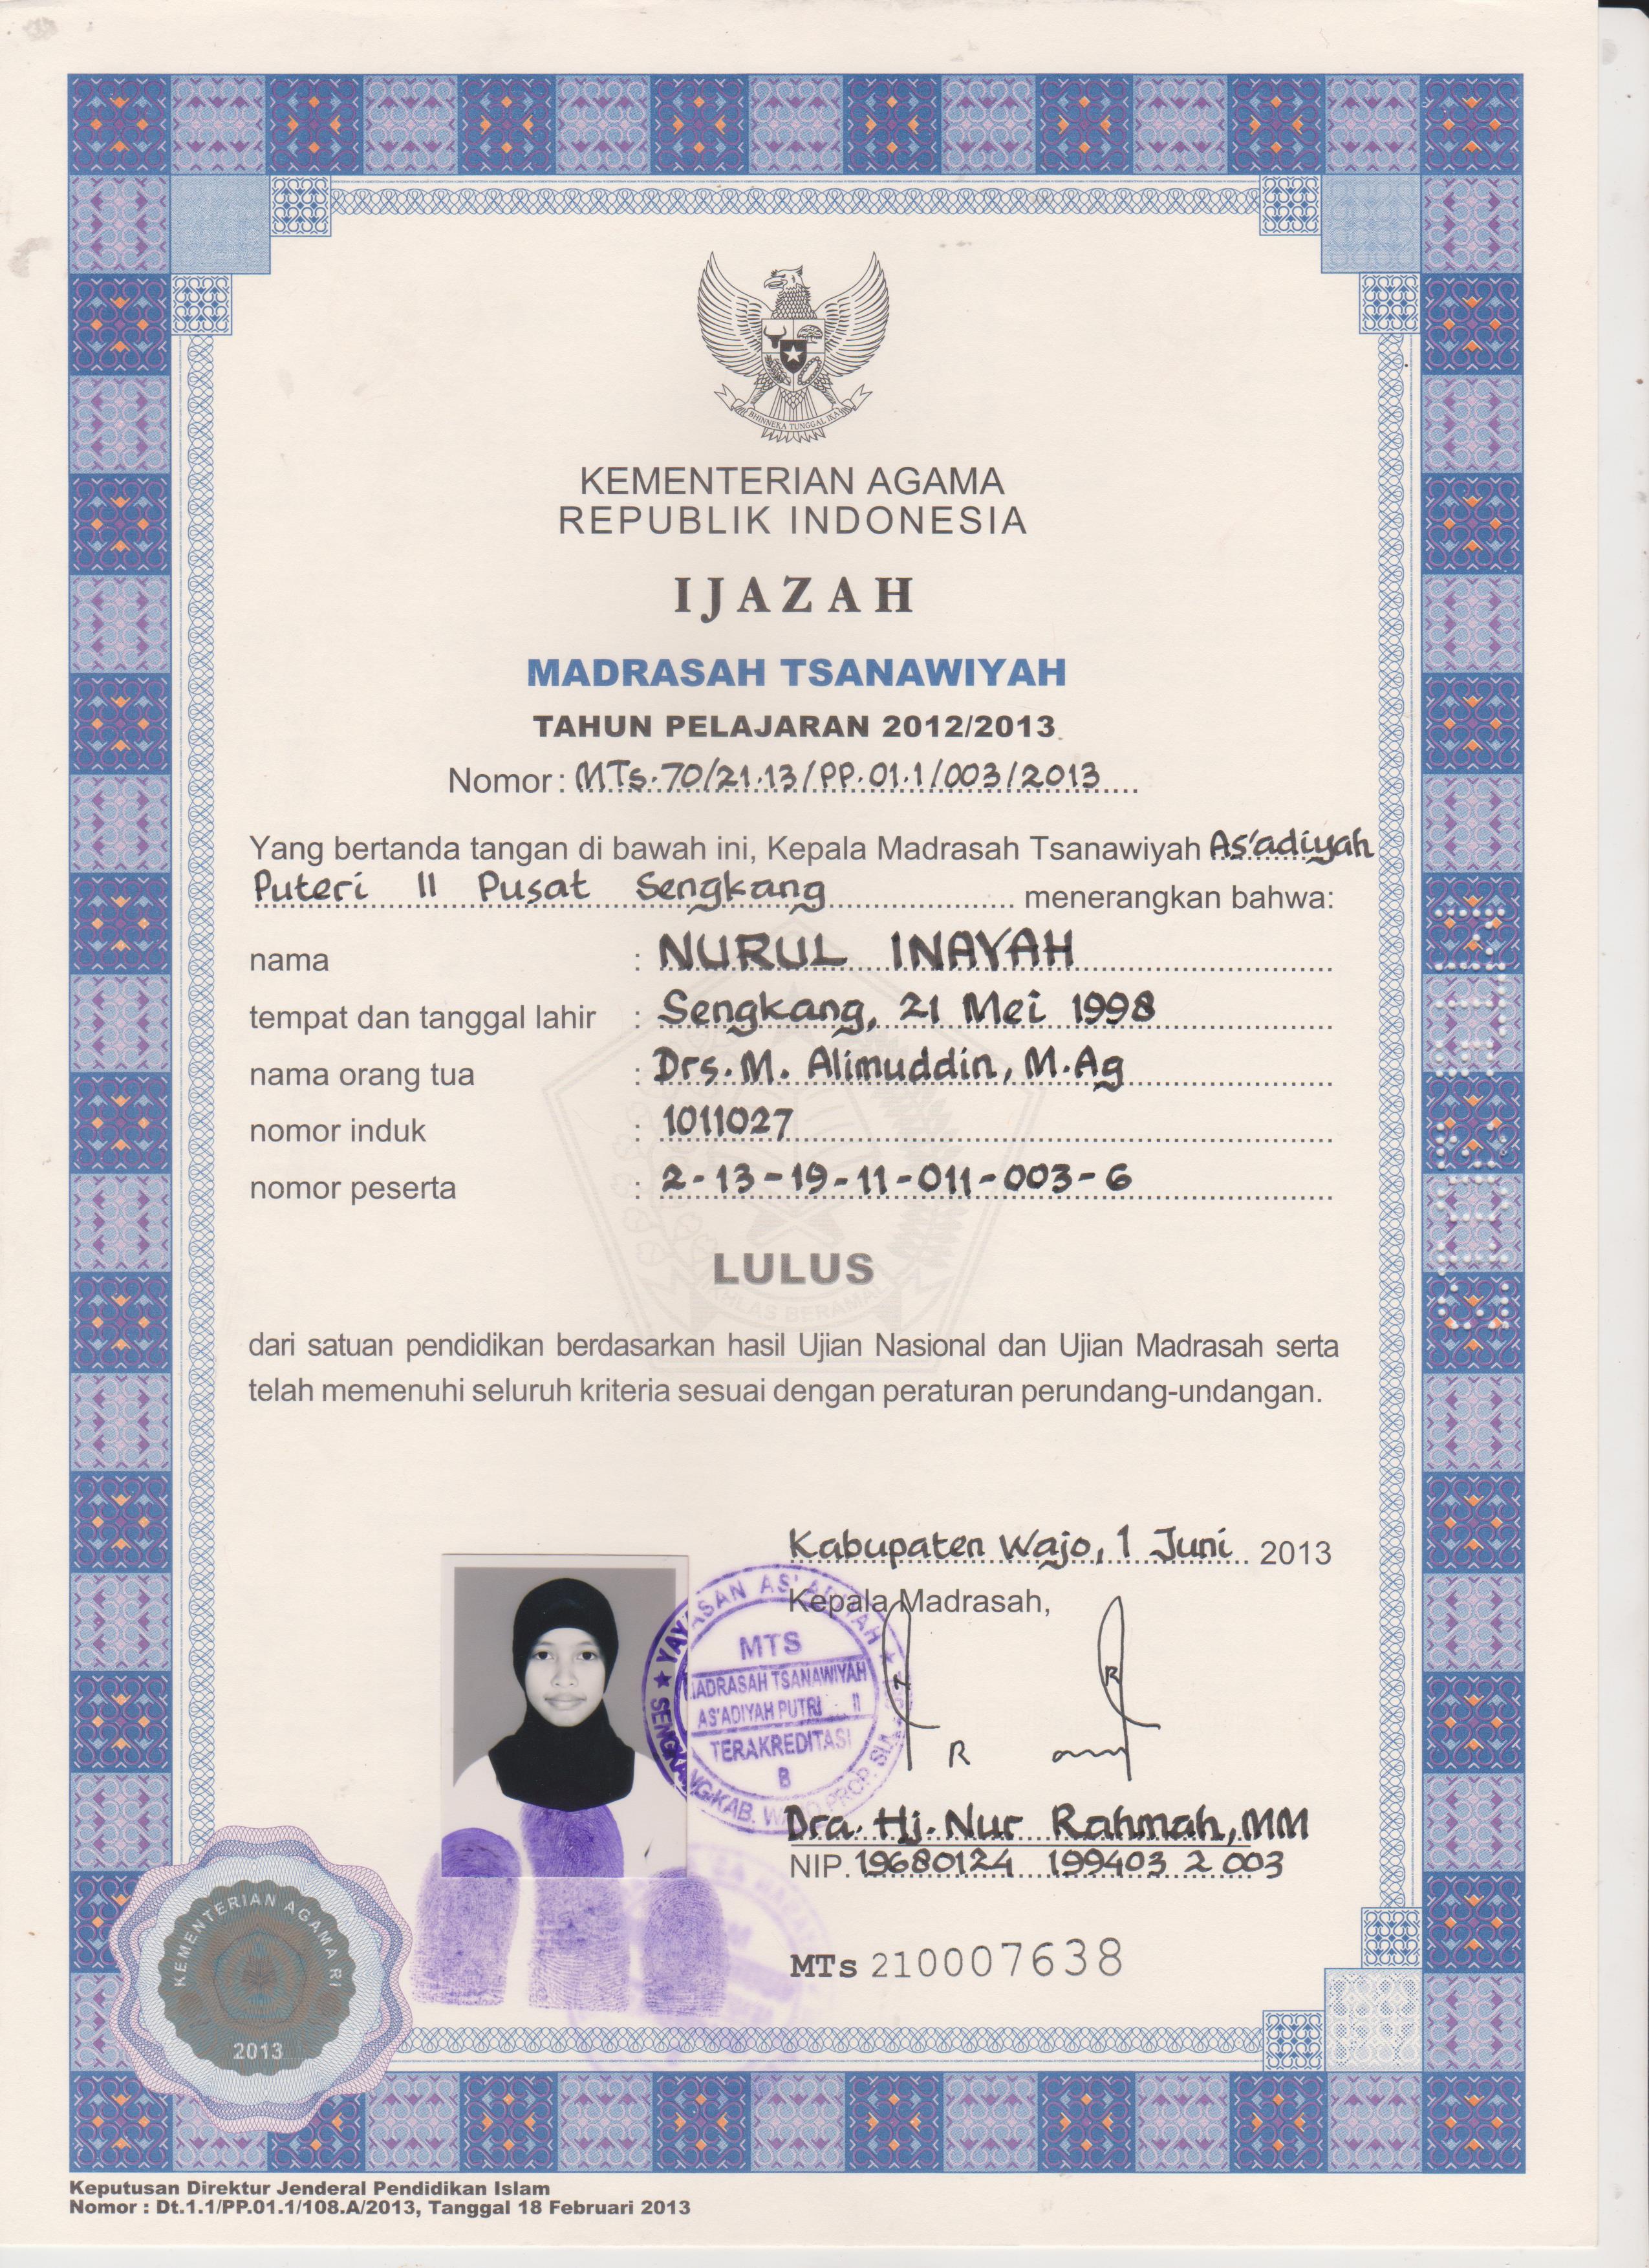 BHINNEKA TUNGGAL IKA
KEMENTERIAN AGAMA
REPUBLIK INDONESIA
IJAZAH
MADRASAH TSANAWIYAH
TAHUN PELAJARAN 2012/2013
Nomor : MTs.70/21.13/PP.01.1/003/2013
Yang bertanda tangan di bawah ini, Kepala Madrasah Tsanawiyah As'adiyah
Puteri II Pusat Sengkang menerangkan bahwa:
nama : NURUL INAYAH
tempat dan tanggal lahir : Sengkang, 21 Mei 1998
nama orang tua : Drs. M. Alimuddin, M.Ag
nomor induk : 1011027
nomor peserta : 2-13-19-11-011-003-6
LULUS
dari satuan pendidikan berdasarkan hasil Ujian Nasional dan Ujian Madrasah serta
telah memenuhi seluruh kriteria sesuai dengan peraturan perundang-undangan.
Kabupaten Wajo, 1 Juni 2013
Kepala Madrasah,
YAYASAN AS'ADIYAH
MTS
MADRASAH TSANAWIYAH
AS'ADIYAH PUTRI II
TERAKREDITASI
B
SENGKANG KAB. WAJO PROP. SUL
Dra. Hj. Nur Rahmah, MM
NIP. 19680124 199403 2 003
MTs 210007638
KEMENTERIAN AGAMA RI
2013
Keputusan Direktur Jenderal Pendidikan Islam
Nomor : Dt.1.1/PP.01.1/108.A/2013, Tanggal 18 Februari 2013